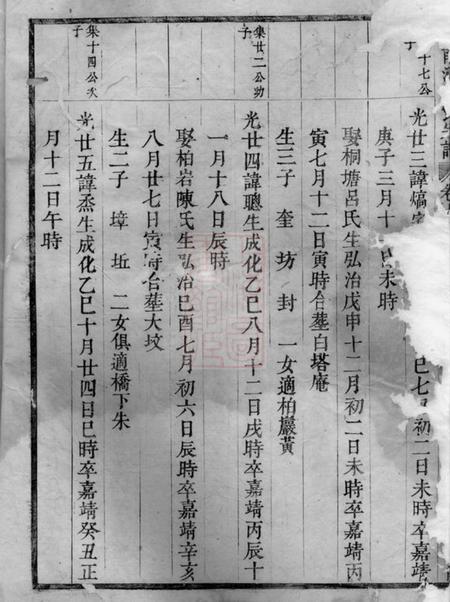 十七公
光廿三諱熇
巳七月初二日未時卒嘉靖
庚子三月十 日未時
娶桐塘呂氏生弘治戊申十二月初二日未時卒嘉靖丙
寅七月十二日寅時合塟白塔庵
生三子 奎 坊 封 一女適柏巖黃
集廿二公幼子
光廿四諱聰生成化乙巳八月十二日戌時卒嘉靖丙辰十
一月十八日辰時
娶柏岩陳氏生弘治己酉七月初六日辰時卒嘉靖辛亥
八月廿七日寅時合塟大坟
生二子 璋 坵 二女俱適橋下朱
集十四公次子
光廿五諱烝生成化乙巳十月廿四日巳時卒嘉靖癸丑正
月十二日午時